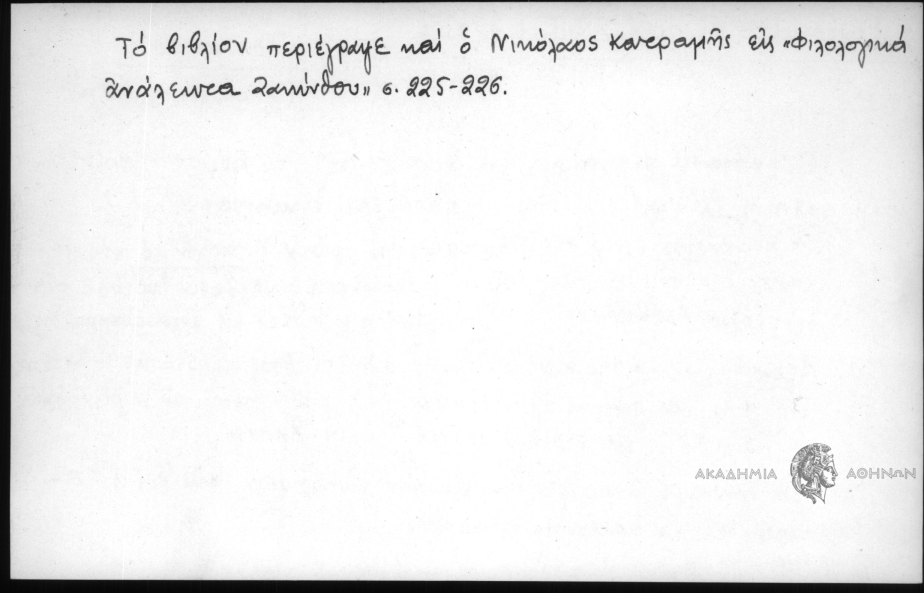 Τό βιβλίον περιέγραψε καί ὁ Νικόλαος Κατραμῆς εἰς «Φιλολογικά
ἀνάλεκτα Ζακύνθου» σ. 225-226.
ΑΚΑΔΗΜΙΑ ΑΘΗΝΩΝ